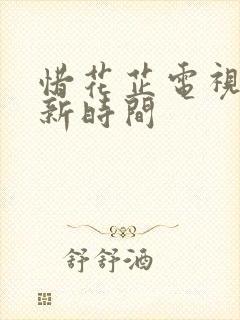 惜花芷電視
新時間
舒舒酒